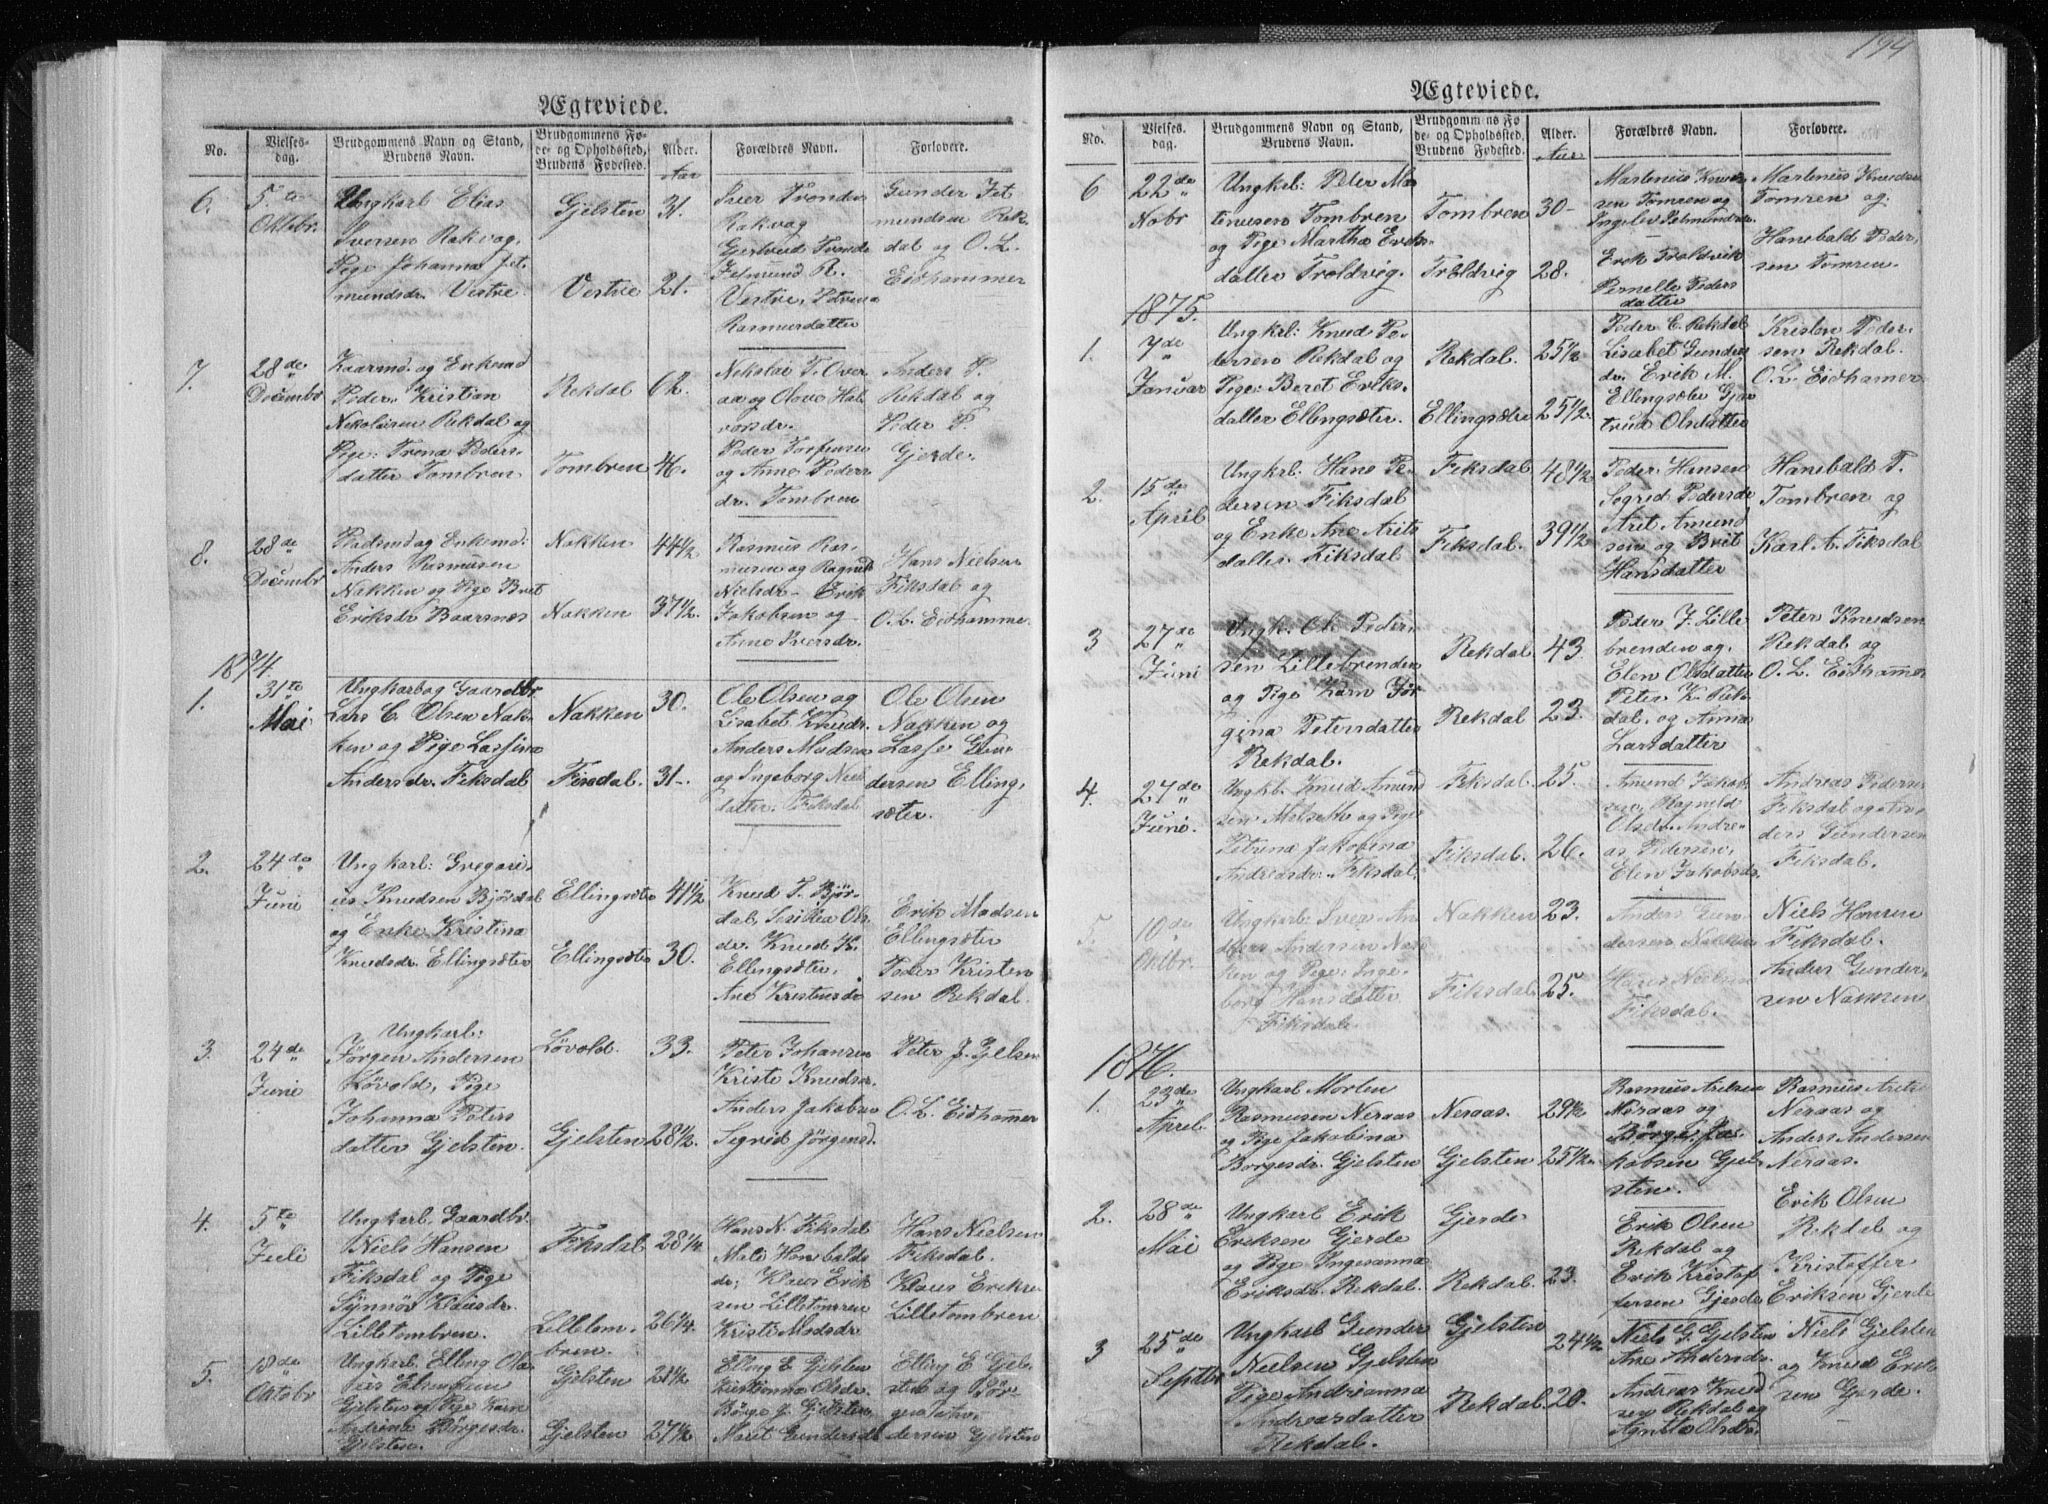 Ægteviede.
No.
Vielses-
dag.
Brudgommens Navn og Stand,
Brudens Navn.
Brudgommens Fo-
de- og Opholdssted,
Brudens Fødested.
Alder.
Aar
Forældres Navn.
Forlovere.
6.
5te
Oktobr.
Ungkarl Elias
Iversen Rakvag,
Pige Johanna Jet
mundsdr. Vestre
Gjelsten
Vestre
31.
21.
Iver Tronden
Rakvag
Gjertrud Tronds
Jetmund R.
Vestre, Petrina
Rasmusdatter
Gunder Jet
mundsen Rek
dal og O. L.
Eidhammer
7.
28de
Decembr
Kaarmd. og Enkemd
Peder Kristian
Nikolaisen Rekdal og
Pige: Trena Peders-
datter Tombren
Rekdal
Tombren
62.
46.
Nikolai T. Over
aa og Olave Hal
vorsdr.
Peder Torfinsen
og Anne Peders
dr. Tombren
Anders P.
Rekdal og
Peder P.
Gjerde.
8.
28de
Decembr
Pladsmd og Enkemd:
Anders Rasmusen
Nakken og Pige Brit
Eriksdr Baarsnes
Nakken
Nakken
44½.
37½.
Rasmus Ras-
musen og Ragnild
Nielsdr - Erik
Jakobsen og
Anne Iversdr.
Hans Nielsen
Fiksdal og
O. L. Eidhamme
1874.
1.
31te
Mai
Ungkarl og Gaardbr
Lars C. Olsen Nak-
ken og Pige Lassina
Andersdr. Fiksdal
Nakken
Fiksdal.
30.
31-
Ole Olsen og
Lisabet Knudsr.
Anders Madsen
og Ingeborg Niels
datter. Fiksdal
Ole Olsen
Nakken og
Lasse Gun
dersen Elling,
sæter.
2.
24de
Juni
Ungkarl: Gregori-
us Knudsen Bjørdal
og Enke Kristina
Knudsdr. Ellingsæter
Ellingsæter
Ellingsæter
41½
30.
Knud T. Bjør-
dal, Sesilia Ols
dr. Knud K.
Ellingsæter.
Ane Kristensdr
Erik Madsen
Ellingsæter
Peder Kristen
sen Rekdal.
3.
24de
Juni
Ungkarl:
Jørgen Andersen
Løvold, Pige
Johanna Peters
datter Gjelsten.
Løvold.
Gjelsten
33.
28½.
Peter Johansen
Kriste Knudsr.
Anders Jakobsen
Segrid Jørgensd.
Peter J. Gjelsen
O. L. Eidhammer
4.
5te
Juli
Ungkarl. Gaardbr.
Niels Hansen
Fiksdal og Pige
Synnøv Klausdr.
Lilletombren.
Fiksdal
Lilletom.
bren.
28¼
26¼.
Hans N. Fiksdal
Mali Hanibalds
dr; Klaus Erik
sen Lilletomren
Kristi Madsdr
Hans Nielsen
Fiksdal.
Klaus Erikse
Lilletombren
5.
18de
Oktobr
Ungkarl. Elling Ola
Gjelsten og Pige Karn
Andrine Børgesdr.
Gjelsten.
Gjelsten
Gjelsten
21½
27½
Elling E. Gjelsten
Kristianna Olsdr.
Børge J. Gjelsten
Marit Gundersdr
Elling E. Gjel-
sten og Bør-
ge
dersen Gjelsten
194
Ægteviede.
No.
Vielses.
dag.
Brudgommens Navn og Stand,
Brudens Navn.
Brudgommens Fo
de- og Opholdssted,
Brudens Fødested.
Alder.
Aar
Forældres Navn.
Forlovere.
6
22de
Nobr
Ungkrl: Peter Ma
tinusen Tombren
og Pige Martha Eriks-
datter Troldvig.
Tombren
Troldvig
30-
28.
Martenius Knud
sen Tomren og
Ingelev Jetmundsdr.
Erik Troldvik
Pernelle Peders
datter
Martenius Knudse
Tomren og
Hanebald Peder,
sen Tomren.
1875.
1.
7de
Januar
Ungkrl: Knud Pe-
dersen Rekdal og
Pige: Beret Eriks-
datter Ellingsæter.
Rekdal.
Ellingsæter
25½
25½.
Peder E. Rekdal
Lisabet Gunders
dr. Erik M.
Ellingsæter Gjær
trud Olsdatter
Kristen Peder-
sen Rekdal.
O. L. Eidhamer
2.
15de
April
Ungkarl. Hans Pe-
dersen Fiksdal
og Enke Ane Arits
datter. Fiksdal
Fiksdal
Fiksdal.
48½
39½
Peder Hansen
Segred Pedersdr
Arit Amund
sen og Brit
Hansdatter
Hanebald P.
Tombren og
Karl A. Fiksdal
3
27de
Juni
Ungk. Ole Peder-
sen Lillebrenden
og Pige Karn Jør
gina Petersdatter
Rekdal.
Rekdal
Rekdal
43.
23.
Peder J. Lille
brenden og.
Elen Olsdatter
Peter K. Rek-
dal. og Anna
Larsdatter
Peter Knudsen
Rekdal og
O. L. Eidhammer
4.
27de
Juni.
Ungkl. Knud Amund
sen Melsetter og Pige
Petrina Jakobina
Andreasdr. Fiksdal.
Fiksdal.
Fiksdal.
25.
26.
Amund Jakob-
sen, Ragnild
Olsdr. Andre-
as Pedersen,
Elen Jakobsdr.
Andreas Peders
Fiksdal og An
ders Gundersen
Fiksdal.
5.
10de
Oktbr.
Ungkarl: Iver An
ders Andersen Nak
ken og Pige: Inge-
borg Hansdatter
Fiksdal
Nakken
Fiksdal
23.
25.
Anders Gun-
dersen Nakken
Hans Nielsen
Fiksdal.
Niels Hansen
Fiksdal.
Anders Gunder,
sen Nakken
1876.
1.
23de
April.
Ungkarl Morten
Rasmusen Neraas
og Pige Jakobina
Borgesdr. Gjelsten
Neraas.
Gjelsten
29½
25½.
Rasmus Aretsen
Neraas og
Børge Ja-
kobsen Gjel
sten.
Rasmus Arets
Neraas og
Anders Andersen
Neraas.
2.
28de
Mai
Ungkarl Erik
Eriksen Gjerde
og Pige Ingeanna
Eriksdr. Rekdal.
Gjerde
Rekdal.
23.
Erik Olsen
Rekdal og
Erik Kristof
fersen Gjerde
Erik Olsen
Rekdal og
Kristoffer
Eriksen Gjerde
3
25de
Septbr
Ungkarl Gunder
Nielsen Gjelsten
Pige Andrianna
Andreasdatter
Rekdal.
Gjelsten
Rekdal.
24½
20.
Niels G. Gjelsten
Ane Andersdr.
Andreas Knud
sen Rekdal og
Agnete Olsdr.
Niels Gjelsten
og Knud Erik
sen Gjerde.